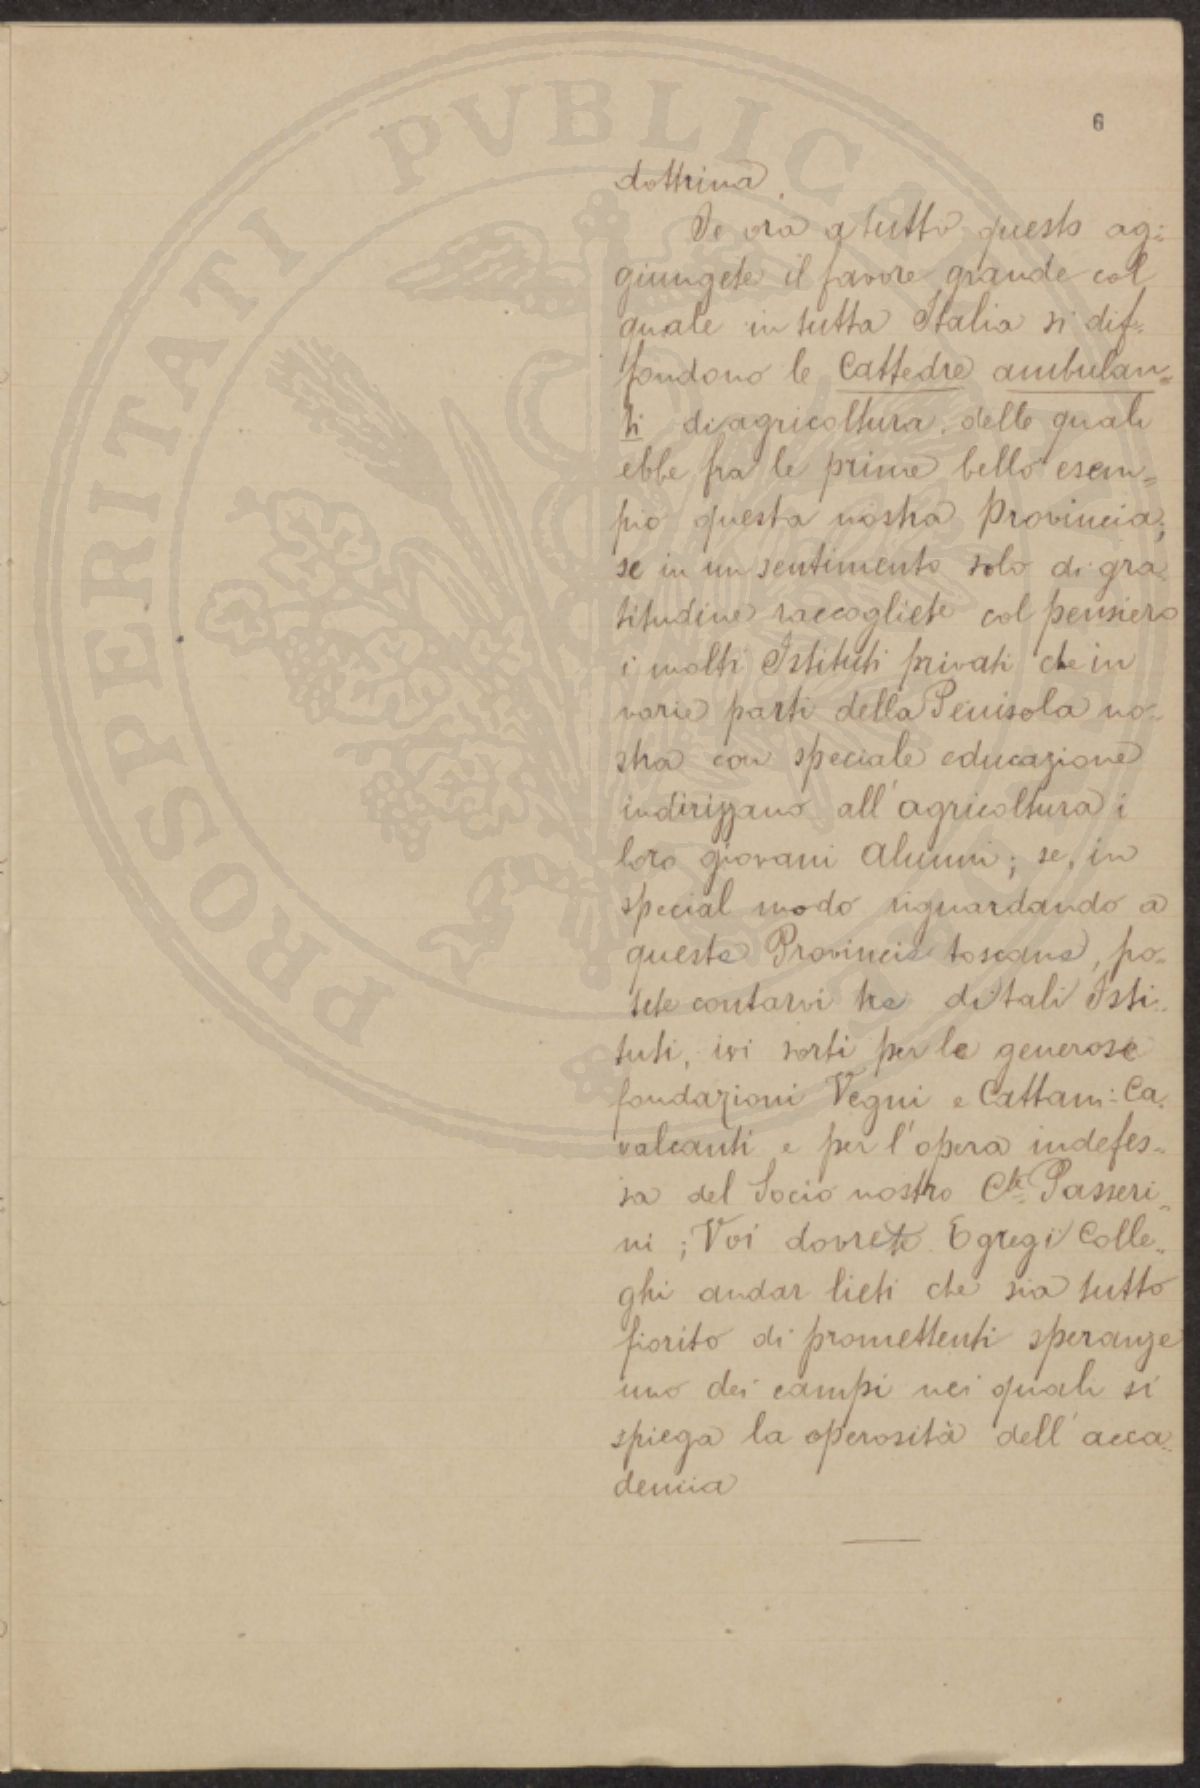 PROSPERITATI PVBLICAE
6
dottrina.
Se ora a tutto questo ag=
giungete il favore grande col
quale in tutta Italia si dif=
fondono le Cattedre ambulan=
ti di agricoltura, delle quali
ebbe fra le prime bello esem=
pio questa nostra Provincia;
se in un sentimento solo di gra=
titudine raccogliete col pensiero
i molti Istituti privati che in
varie parti della Penisola no=
stra con speciale educazione
indirizzano all'agricoltura i
loro giovani alunni; se, in
special modo riguardando a
queste Provincie toscane, po=
tete contarvi tre di tali Isti=
tuti, ivi sorti per le generose
fondazioni Vegni e Cattani=Ca=
valcanti e per l'opera indefes=
sa del Socio nostro Cte Passeri=
ni; Voi dovrete Egregi Colle=
ghi andar lieti che sia tutto
fiorito di promettenti speranze
uno dei campi nei quali si
spiega la operosità dell'acca=
demia